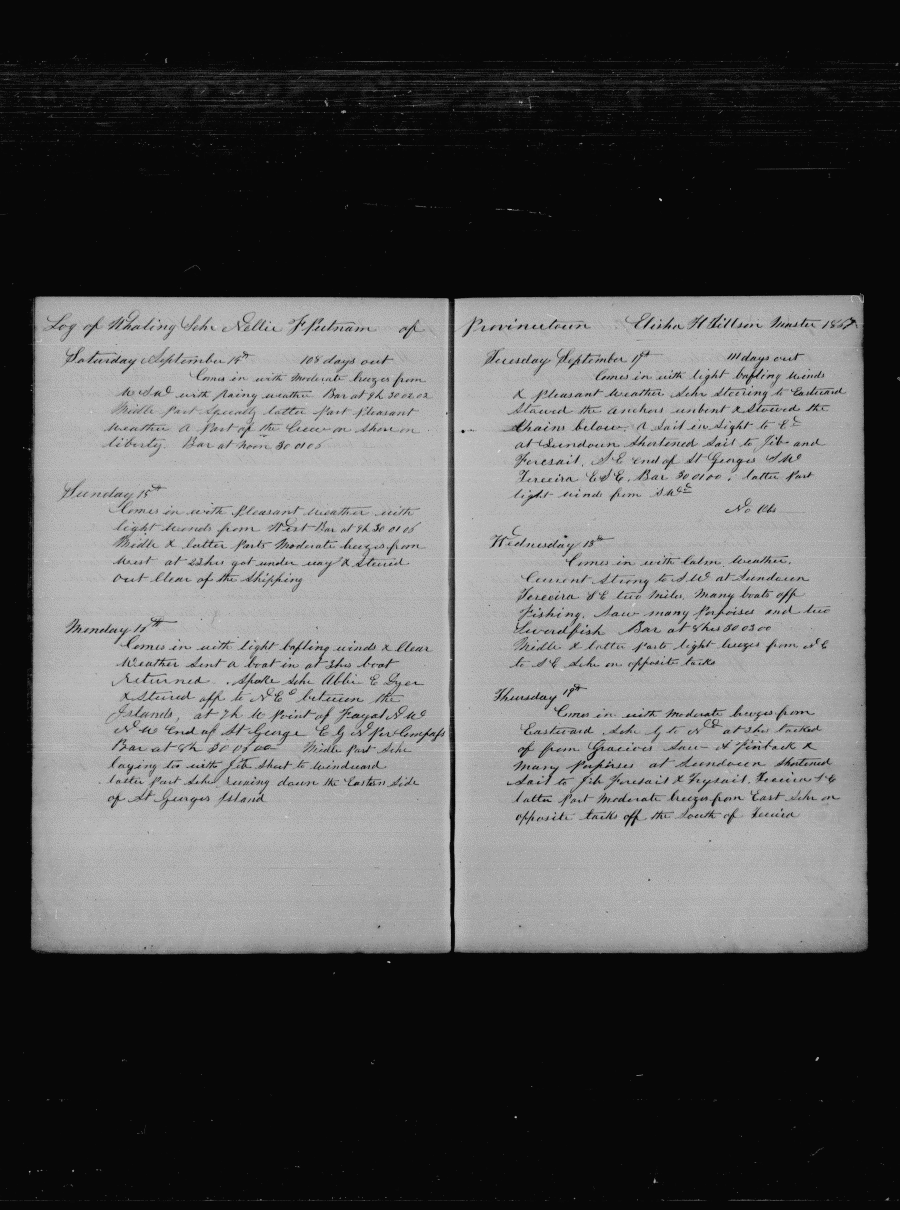 Log of Whaling Schr Nellie F Putnam of
Saturday September 14th 108 days out
Comes in with moderate breezes from
W S W with Rainy weather Bar at 9h 30 02 02
Middle Part Squally latter Part Pleasant
Weather A Part of the Crew on Shore on
liberty. Bar at Noon 30 01 05
Sunday 15th
Comes in with Pleasant Weather with
light Winds from West Bar at 9h 30 01 05
Middle & latter Parts Moderate breezes from
West at 23hrs got under way & Steered
out Clear of the Shipping
Monday 16th
Comes in with light baffling winds & Clear
Weather Sent a boat in at 3hrs boat
returned. Spoke Schr Abbie E Dyer
& Steered off to N Ed between the
Islands, at 7h W Point of Fayal N W
N W End of St George E by N Per Compass
Bar at 8h 30 05 00 Middle Part Schr
laying too with Jib Sheet to windward
latter Part Schr running down the Eastern Side
of St Georges Island
Provincetown Elisha H Tillson Master 1867
Tuesday September 17th 111 days out
Comes in with light baffling winds
& Pleasant Weather Schr Steering to Eastward
Stowed the anchors unbent & Stowed the
Chains below. A Sail in Sight to Ed
at Sundown Shortened Sail to Jib and
Foresail. S E end of St Georges S W
Terceira E S E. Bar 30 01 00, latter Part
light winds from S Wd
No Obs
Wednesday 18th
Comes in with Calm Weather.
Current Strong to S W at Sundown
Terceira N E two Miles. Many boats off
Fishing. Saw many Porpoises and two
Swordfish Bar at 8hrs 30 03 00
Middle & latter Parts light breezes from N E
to S E Schr on opposite tacks
Thursday 19th
Comes in with Moderate breezes from
Eastward Schr by to Nd at 3hrs tacked
of from Graciosa Saw A Finback &
Many Porpoises at Sundown Shortened
Sail to Jib Foresail & Trysail. Terceira S E
latter Part Moderate breezes from East Schr on
opposite tacks off the South of Terceira